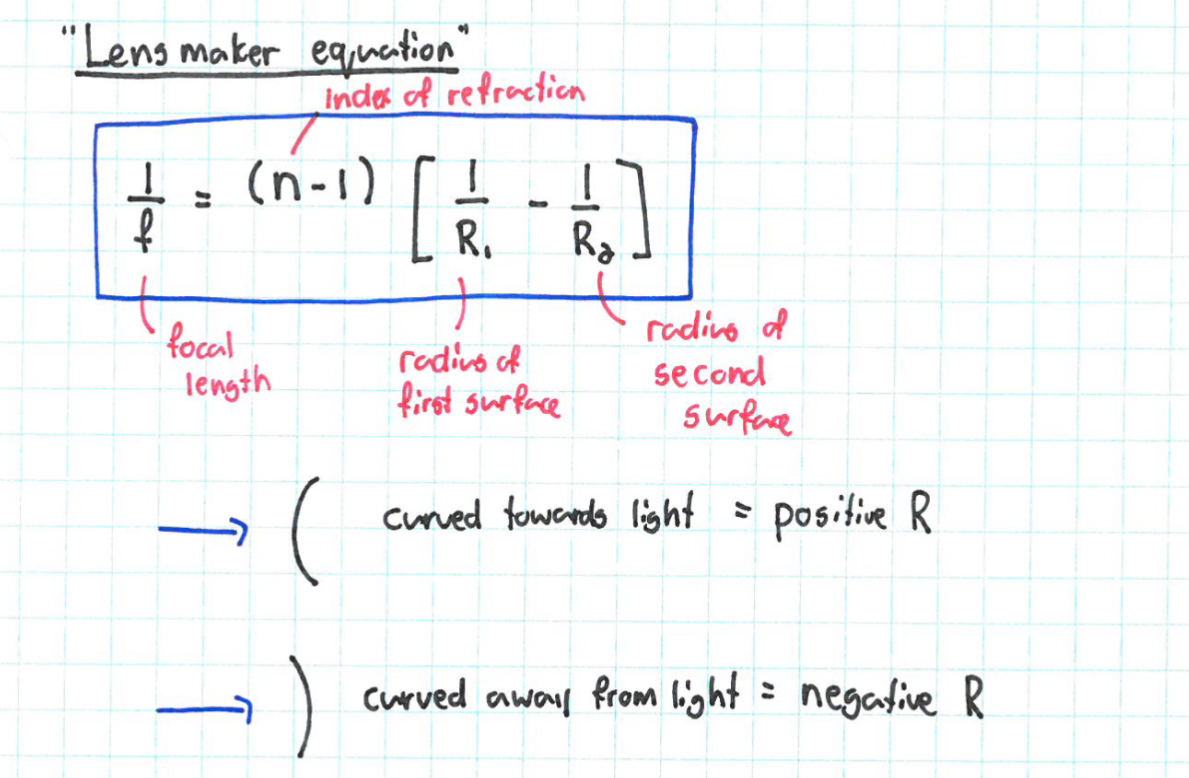 "Lens maker equation"
index of refraction
1/f = (n-1) [1/R₁ - 1/R₂]
focal
length
radius of
first surface
radius of
second
surface
curved towards light = positive R
curved away from light = negative R